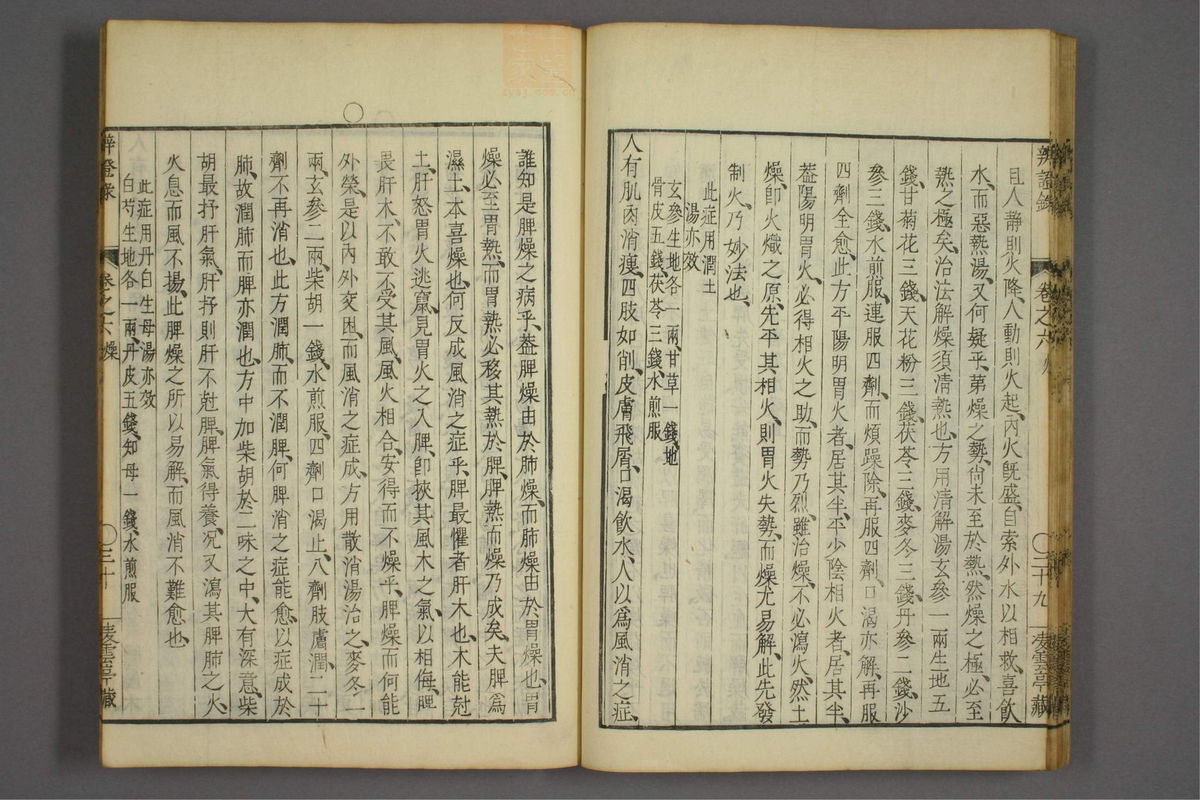 且人静則火降人動則火起内火旣盛自索外水以相救喜飲
水而惡熱湯又何疑乎第燥之勢尙未至於熱然燥之極必至
熱之極矣治法解燥須淸熱也方用淸解湯玄參一兩生地五
錢甘菊花三錢天花粉三錢茯苓三錢麥冬三錢丹參二錢沙
參三錢水煎服連服四劑而煩躁除再服四劑口渴亦解再服
四劑全愈此方平陽明胃火者居其半平少陰相火者居其半
葢陽明胃火必得相火之助而勢乃烈雖治燥不必瀉火然土
燥卽火熾之原先平其相火則胃火失勢而燥尤易解此先發
制火乃妙法也
此症用潤土
湯亦效
玄參生地各一兩甘草一錢地
骨皮五錢茯苓三錢水煎服
人有肌肉消瘦四肢如削皮膚飛屑口渴飲水人以爲風消之症
辨證錄
卷之六
二十九
凌雲亭藏
誰知是脾燥之病乎葢脾燥由於肺燥而肺燥由於胃燥也胃
燥必至胃熱而胃熱必移其熱於脾脾熱而燥乃成矣夫脾爲
濕土本喜燥也何反成風消之症乎脾最懼者肝木也木能尅
土肝怒胃火逃竄見胃火之入脾卽挾其風木之氣以相侮脾
畏肝木不敢不受其風風火相合安得而不燥乎脾燥而何能
外榮是以内外交困而風消之症成方用散消湯治之麥冬二
兩玄參二兩柴胡一錢水煎服四劑口渴止八劑肢膚潤二十
劑不再消也此方潤肺而不潤脾何脾消之症能愈以症成於
肺故潤肺而脾亦潤也方中加柴胡於二味之中大有深意柴
胡最抒肝氣肝抒則肝不尅脾脾氣得養况又瀉其脾肺之火
火息而風不揚此脾燥之所以易解而風消不難愈也
此症用丹白生母湯亦效
白芍生地各一兩丹皮五錢知母一錢水煎服
辨證錄
卷之六燥
三十
凌雲亭藏